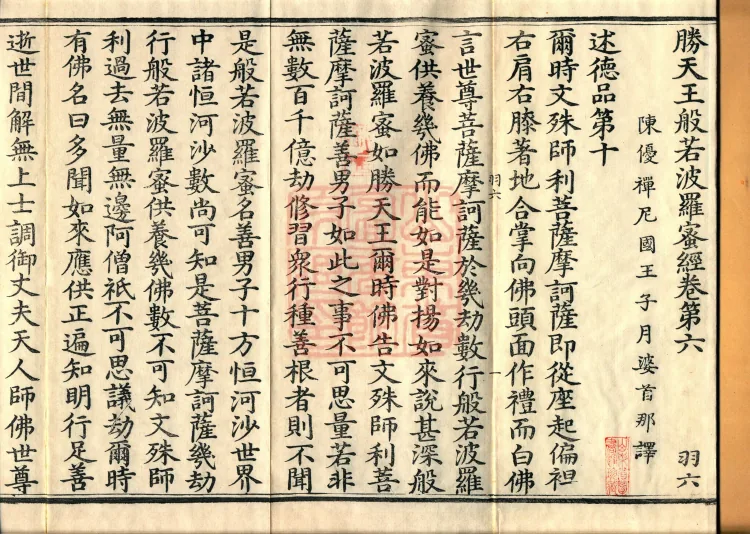 勝天王般若波羅蜜經卷第六 羽六
陳優禪尼國王子月婆首那譯
述德品第十
爾時文殊師利菩薩摩訶薩即從座起偏袒
右肩右膝著地合掌向佛頭面作禮而白佛
言世尊菩薩摩訶薩於幾劫數行般若波羅
羽六 一
蜜供養幾佛而能如是對揚如來說甚深般
若波羅蜜如勝天王爾時佛告文殊師利菩
薩摩訶薩善男子如此之事不可思量若非
無數百千億劫修習眾行種善根者則不聞
是般若波羅蜜名善男子十方恒河沙世界
中諸恒河沙數尚可知是菩薩摩訶薩幾劫
行般若波羅蜜供養幾佛數不可知文殊師
利過去無量無邊阿僧祇不可思議劫爾時
有佛名曰多聞如來應供正遍知明行足善
逝世間解無上士調御丈夫天人師佛世尊